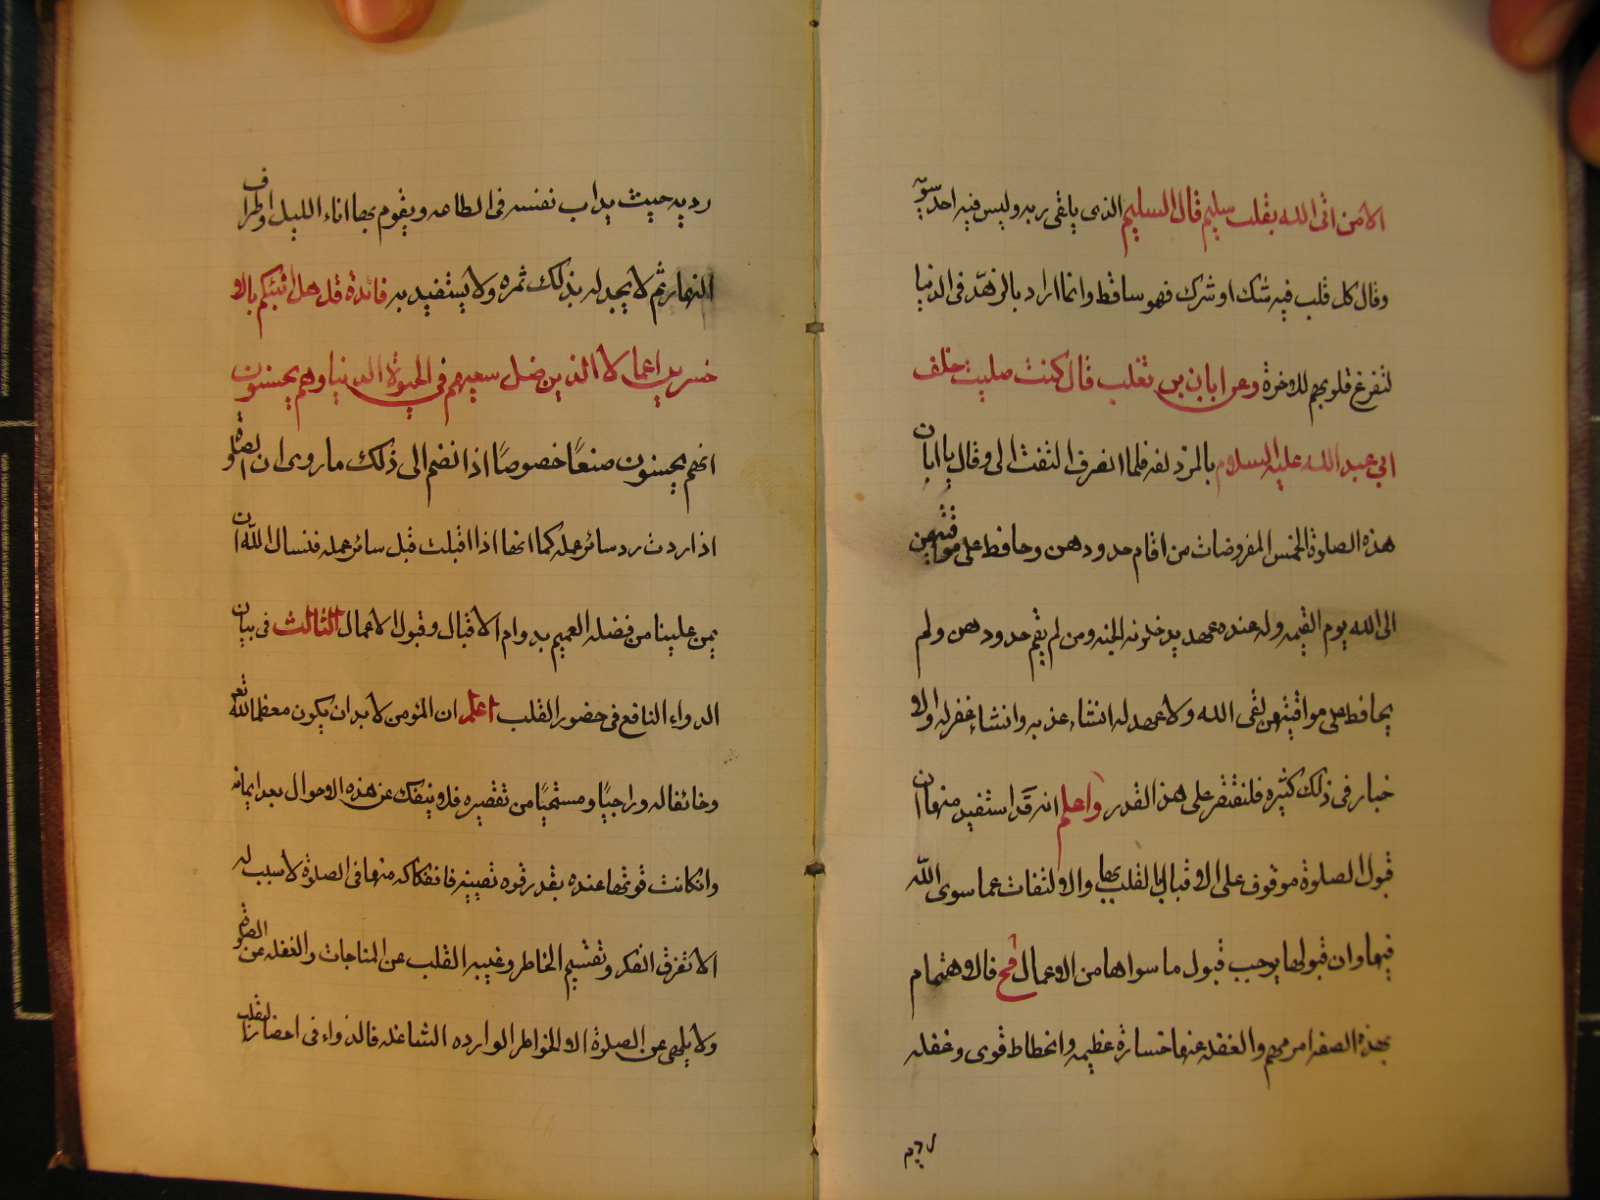 الا من اتى الله بقلب سليم قال السليم الذى يلقى ربه وليس فيه احد سويه
وقال كل قلب فيه شك او شرك فهو ساقط وانما اراد بالزهد فى الدنيا
لتفرغ قلوبهم للاخرة وعن ابان بن تغلب قال كنت صليت خلف
ابى عبد الله عليه السلام بالمزدلفه فلما انصرف التفت الى وقال يا ابان
هذه الصلوة الخمس المفروضات من اقام حدودهن وحافظ على مواقيتهن
الى الله يوم القيمه وله عنده عهد يدخلونه الجنه ومن لم يقم حدودهن ولم
يحافظ على مواقيتهن لقى الله ولا عهد له انشاء عذبه وانشاء غفر له والا
خبار فى ذلك كثيره فلنقتصر على هذ القدر واعلم انه قد استفيد منها ان
قبول الصلوة موقوف على الاقبال بالقلب بها والالتفات عما سوى الله
فيها وان قبولها يوجب قبول ما سواها من الاعمال فح فالاهتمام
بهذه الصفه امر مهم والغفله عنها خسارة عظيمه وانحطاط قوى وغفله
رديه حيث يداب نفسه فى الطاعه ويقوم بها اناء الليل واطراف
النهار ثم لا يجد له بذلك ثمره ولا يستفيد به فائدة قل هل انبئكم بالا
خسرين اعمالا الذين ضل سعيهم فى الحيوة الدنيا وهم يحسبون
انهم يحسنون صنعًا خصوصًا اذا انضم الى ذلك ما روى ان الصلوة
اذا ردت رد سائر عمله كما انها اذا اقبلت قبل سائر عمله فنسال الله ان
يمن علينا من فضله العميم بدوام الاقبال وقبول الاعمال الثالث فى بيان
الدواء النافع فى حضور القلب اعلم ان المؤمن لا بد ان يكون معظما لله تع
وخائفا له وراجيًا ومستحيًا من تقصيره فلا ينفك عن هذه الاحوال بعد ايمانه
وانكانت قوتها عنده بقدر قوه يقينه فانفكاكه منها فى الصلوة لا سبب له
الا تفرق الفكر وتقسيم الخاطر وغيبه القلب عن المناجات والغفله عن الصلوة
ولا يلهى عن الصلوة الا الخواطر الوارده الشاغله فالدواء فى احضار القلب